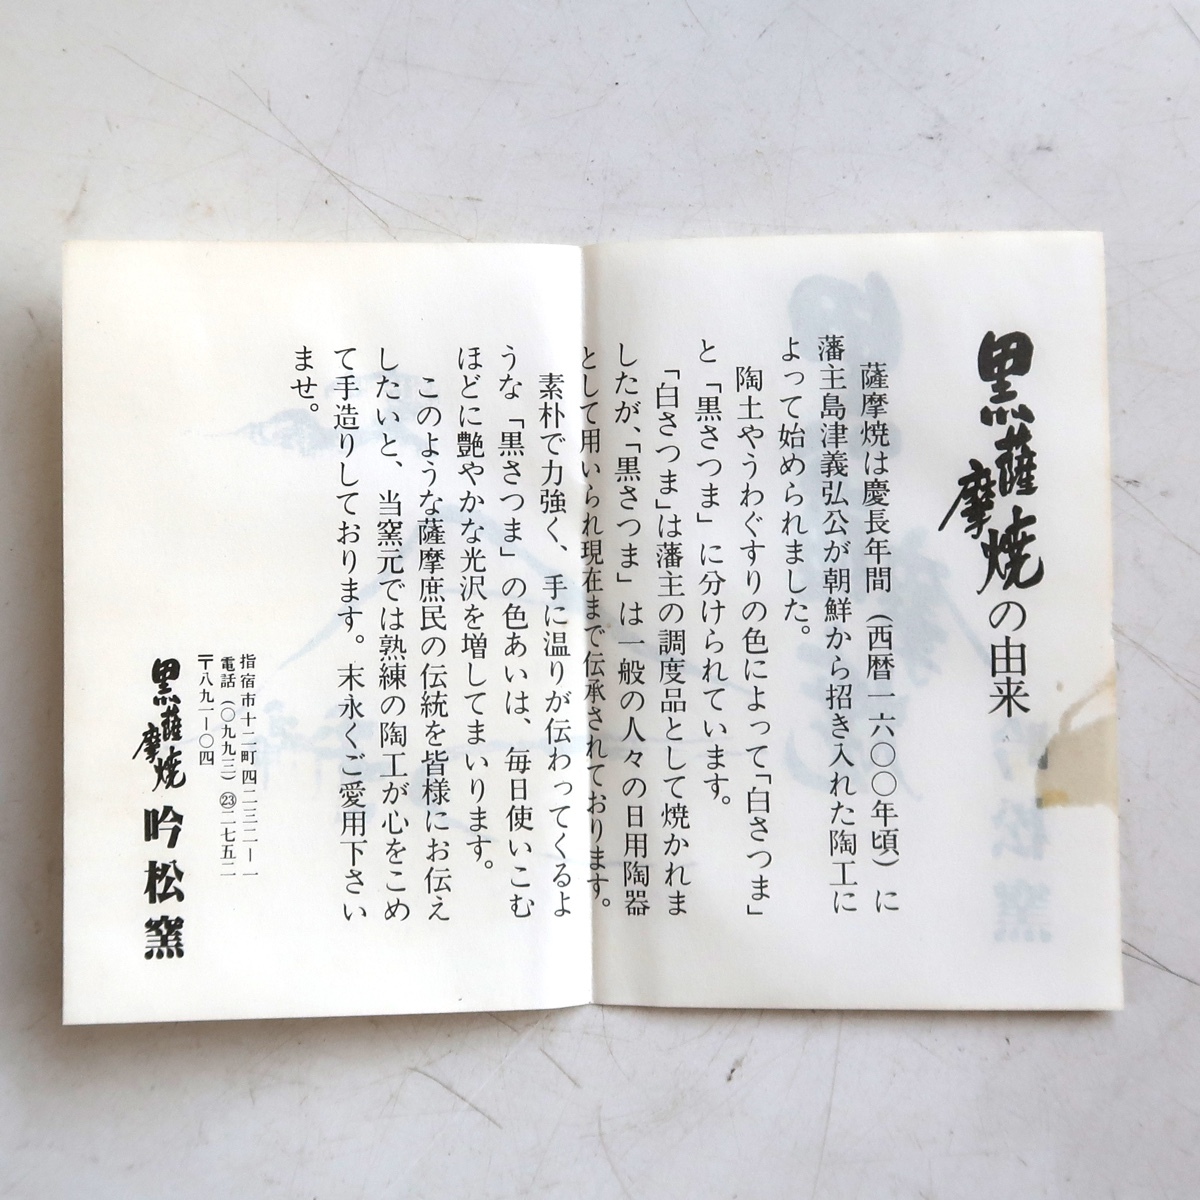 黒薩摩焼の由来
薩摩焼は慶長年間(西暦一六〇〇年頃)に
藩主島津義弘公が朝鮮から招き入れた陶工に
よって始められました。
陶土やうわぐすりの色によって「白さつま」
と「黒さつま」に分けられています。
「白さつま」は藩主の調度品として焼かれま
したが、「黒さつま」は一般の人々の日用陶器
として用いられ現在まで伝承されております。
素朴で力強く、手に温りが伝わってくるよ
うな「黒さつま」の色あいは、毎日使いこむ
ほどに艶やかな光沢を増してまいります。
このような薩摩庶民の伝統を皆様にお伝え
したいと、当窯元では熟練の陶工が心をこめ
て手造りしております。末永くご愛用下さい
ませ。
指宿市十二町四二三二ー一
電話(〇九九三)㉓二七五二
〒八九一ー〇四
黒薩摩焼 吟松窯